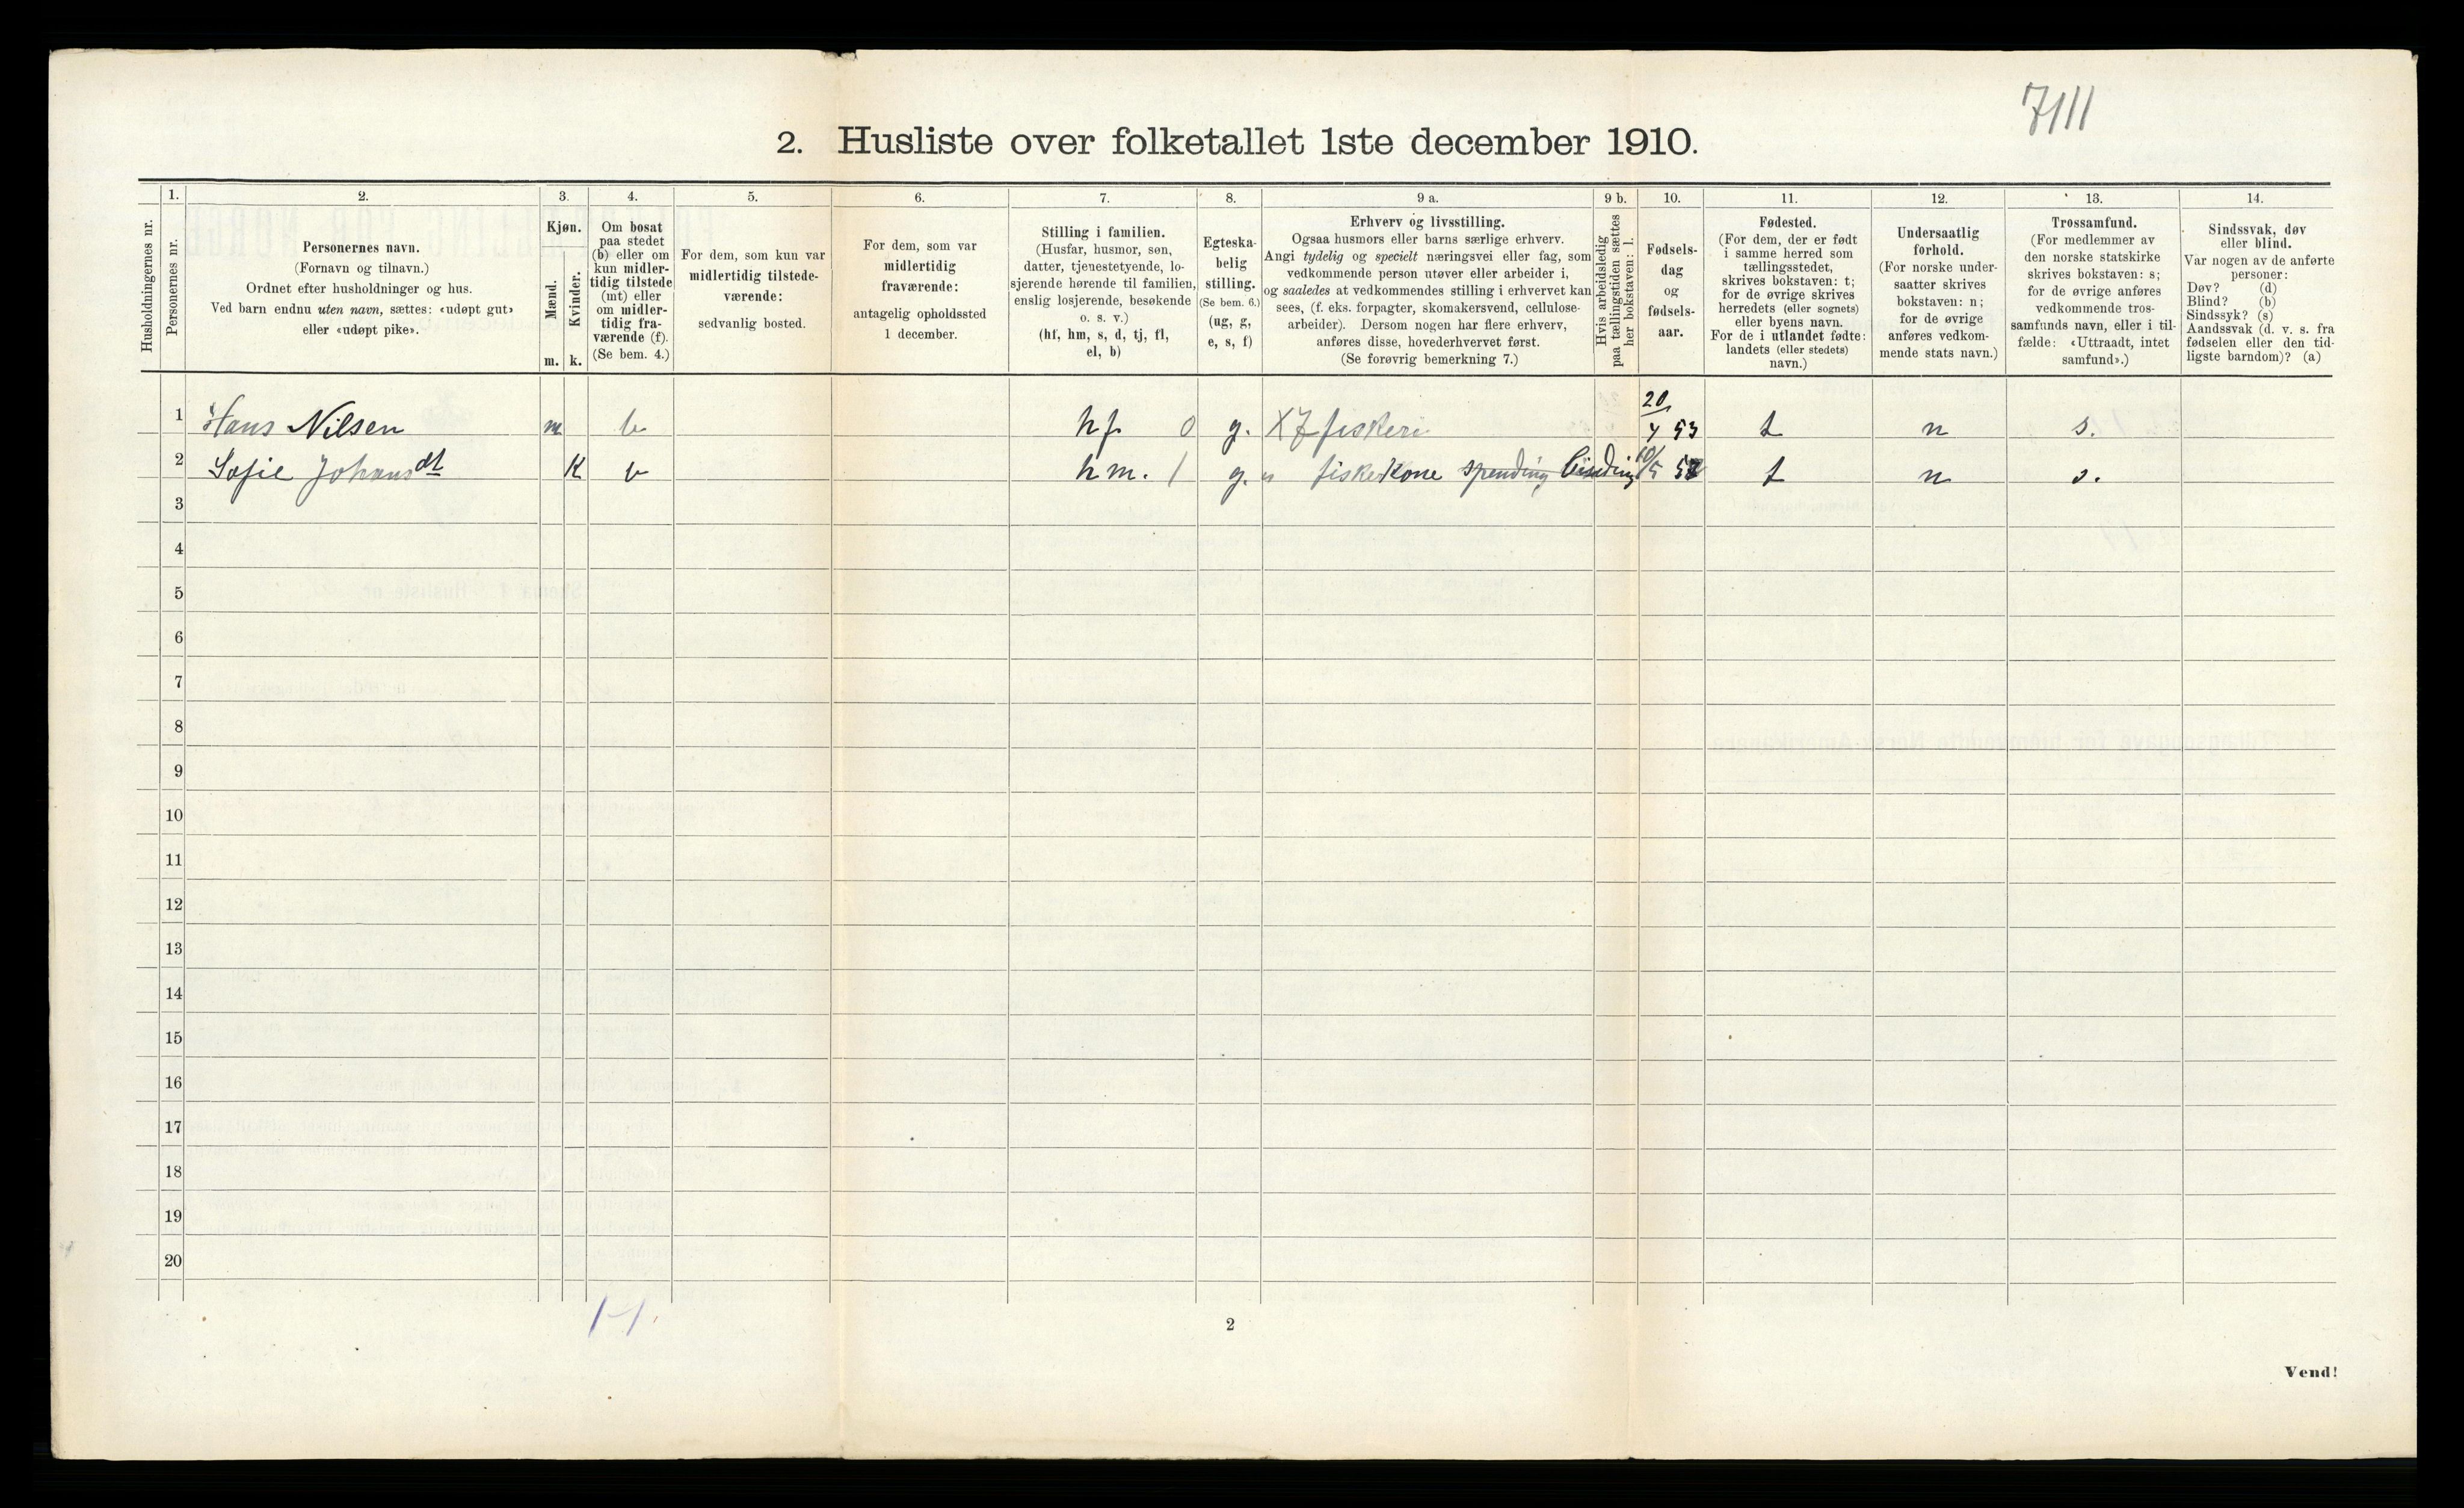 7111
2. Husliste over folketallet 1ste december 1910.
Husholdningernes nr.
1.
Personernes nr.
2.
Personernes navn.
(Fornavn og tilnavn.)
Ordnet efter husholdninger og hus.
Ved barn endnu uten navn, sættes: «udøpt gut»
eller «udøpt pike».
3.
Kjøn.
Mænd.
m.
Kvinder.
k.
4.
Om bosat
paa stedet
(b) eller om
kun midler-
tidig tilstede
(mt) eller
om midler-
tidig fra-
værende (f).
(Se bem. 4.)
5.
For dem, som kun var
midlertidig tilstede-
værende:
sedvanlig bosted.
6.
For dem, som var
midlertidig
fraværende:
antagelig opholdssted
1 december.
7.
Stilling i familien.
(Husfar, husmor, søn,
datter, tjenestetyende, lo-
sjerende hørende til familien,
enslig losjerende, besøkende
o. s. v.)
(hf, hm, s, d, tj, fl,
el, b)
8.
Egteska-
belig
stilling.
(Se bem. 6.)
(ug, g,
e, s, f)
9 a.
Erhverv og livsstilling.
Ogsaa husmors eller barns særlige erhverv.
Angi tydelig og specielt næringsvei eller fag, som
vedkommende person utøver eller arbeider i,
og saaledes at vedkommendes stilling i erhvervet kan
sees, (f. eks. forpagter, skomakersvend, cellulose-
arbeider). Dersom nogen har flere erhverv,
anføres disse, hovederhvervet først.
(Se forøvrig bemerkning 7.)
9 b.
Hvis arbeidsledig
paa tællingstiden sættes
her bokstaven: l.
10.
Fødsels-
dag
og
fødsels-
aar.
11.
Fødested.
(For dem, der er født
i samme herred som
tællingsstedet,
skrives bokstaven: t;
for de øvrige skrives
herredets (eller sognets)
eller byens navn.
For de i utlandet fødte:
landets (eller stedets)
navn.)
12.
Undersaatlig
forhold.
(For norske under-
saatter skrives
bokstaven: n;
for de øvrige
anføres vedkom-
mende stats navn.)
13.
Trossamfund.
(For medlemmer av
den norske statskirke
skrives bokstaven: s;
for de øvrige anføres
vedkommende tros-
samfunds navn, eller i til-
fælde: «Uttraadt, intet
samfund».)
14.
Sindssvak, døv
eller blind.
Var nogen av de anførte
personer:
Døv? (d)
Blind? (b)
Sindssyk? (s)
Aandssvak (d. v. s. fra
fødselen eller den tid-
ligste barndom)? (a)
1 Hans Nilsen m b hf 0 g. X7 fiskeri 20/4 53 t n s.
2 Sofie Johansdt K b hm. 1 g. " fiskerkone spending binding 10/5 t n s.
3
4
5
6
7
8
9
10
11
12
13
14
15
16
17
18
19
20
1-1
2
Vend!